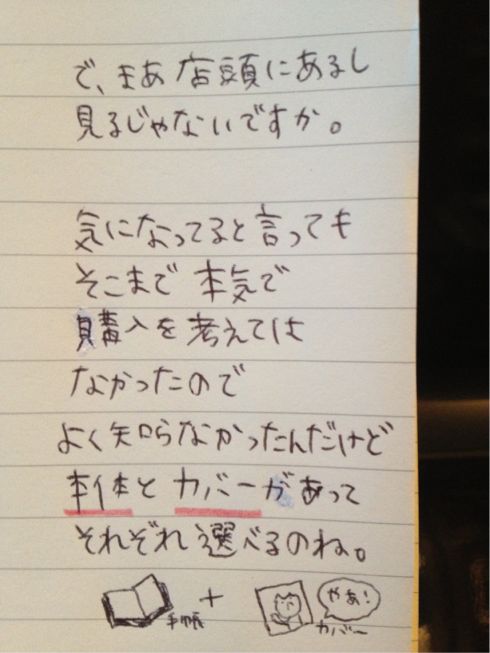 で、まあ店頭にあるし
見るじゃないですか。
気になってると言っても
そこまで本気で
購入を考えては
なかったので
よく知らなかったんだけど
本体とカバーがあって
それぞれ選べるのね。
手帳 + カバー やあ!